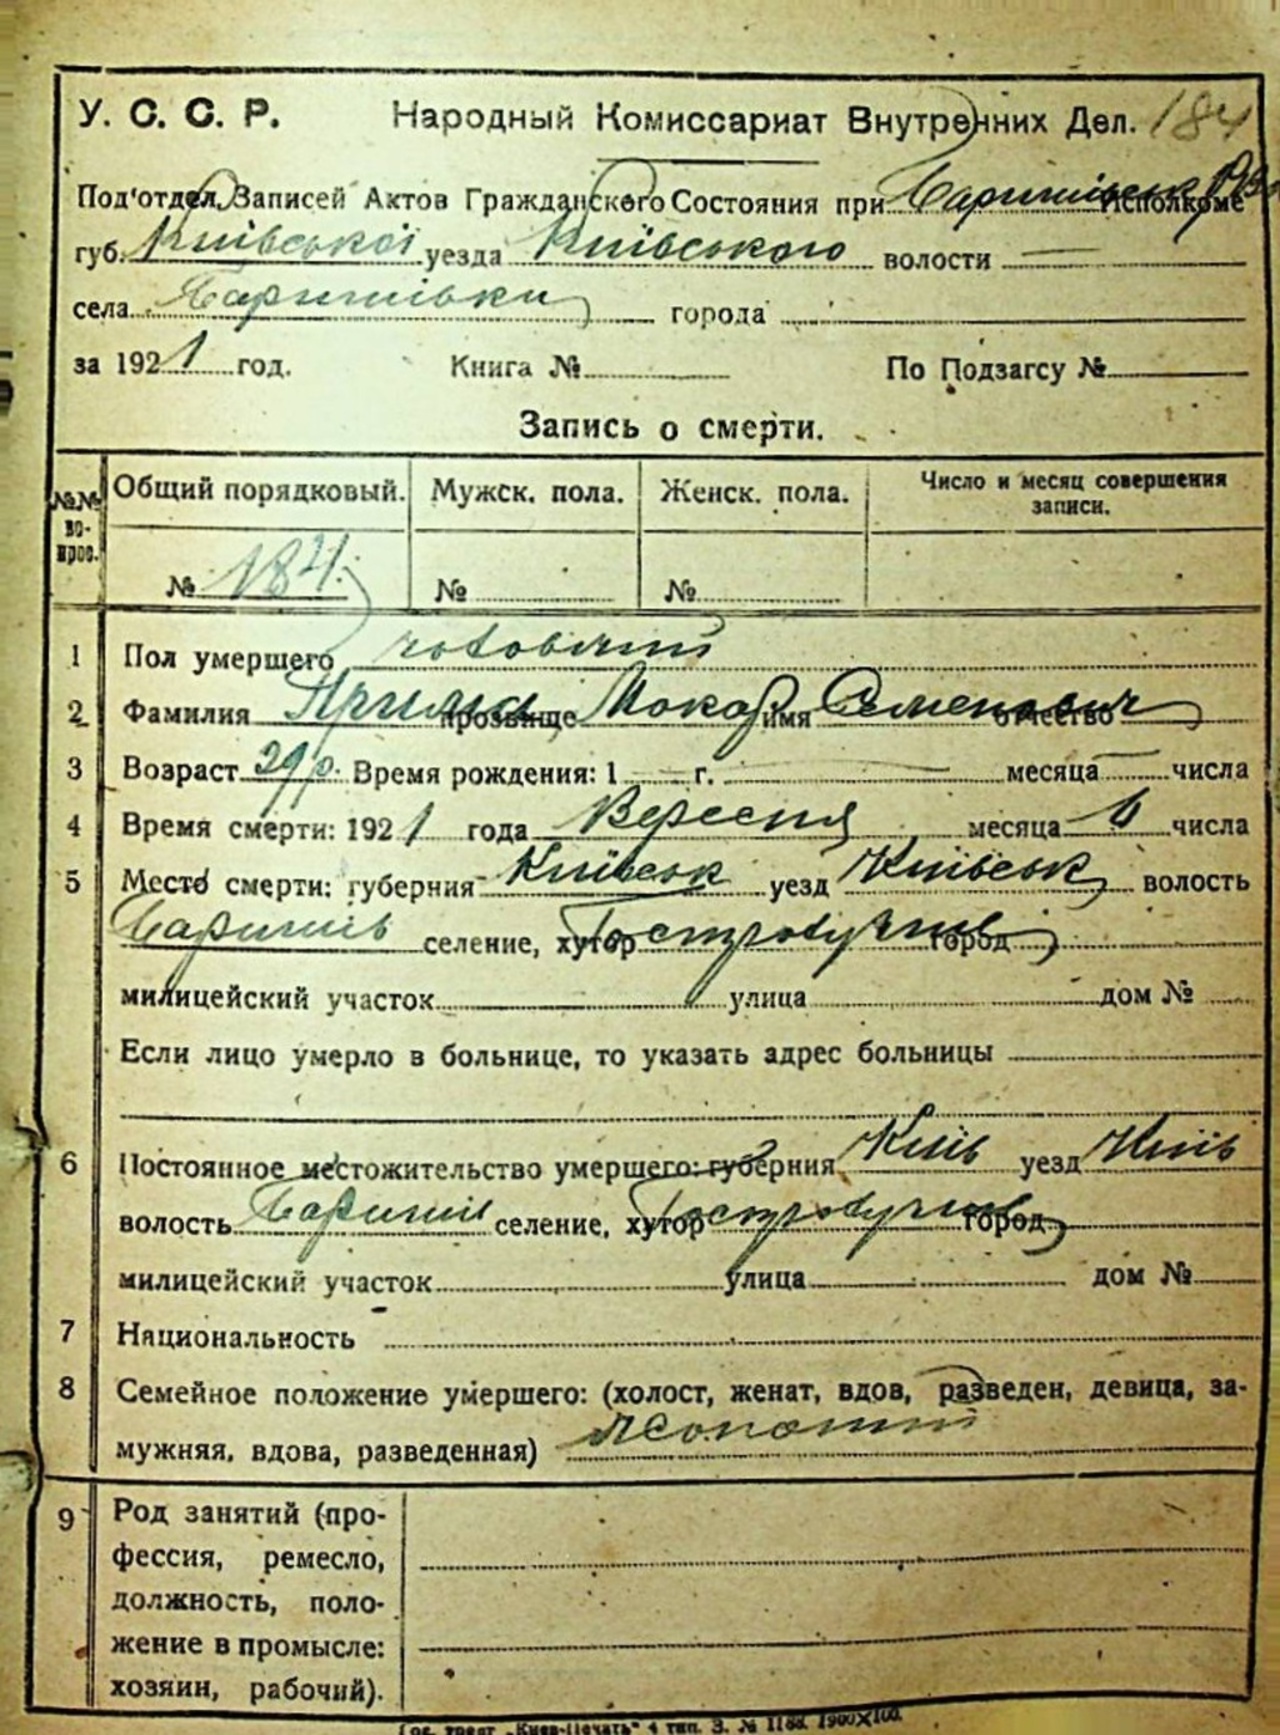 У. С. С. Р. Народный Комиссариат Внутренних Дел. 184
Под'отдел Записей Актов Гражданского Состояния при Исполкоме
губ. Київської уезда Київського волости —
села Баришівки города
за 1921 год. Книга № По Подзагсу №
Запись о смерти.
№№ во- прос. Общий порядковый. Мужск. пола. Женск. пола. Число и месяц совершения записи.
№ 184. № №
1 Пол умершего чоловічий
2 Фамилия прозвище Мокар имя Семенович отчество
3 Возраст 29 р. Время рождения: 1 — г. — месяца — числа
4 Время смерти: 1921 года Вересня месяца 6 числа
5 Место смерти: губерния Київськ уезд Київськ волость
Баришів селение, хутор город
милицейский участок улица дом №
Если лицо умерло в больнице, то указать адрес больницы
6 Постоянное местожительство умершего: губерния Київ уезд Київ
волость Баришів селение, хутор город
милицейский участок улица дом №
7 Национальность
8 Семейное положение умершего: (холост, женат, вдов, разведен, девица, за-
мужняя, вдова, разведенная) жонатий
9 Род занятий (про-
фессия, ремесло,
должность, поло-
жение в промысле:
хозяин, рабочий).
„Киев-Печать" 4 тип. З. № 1188. 1900×100.